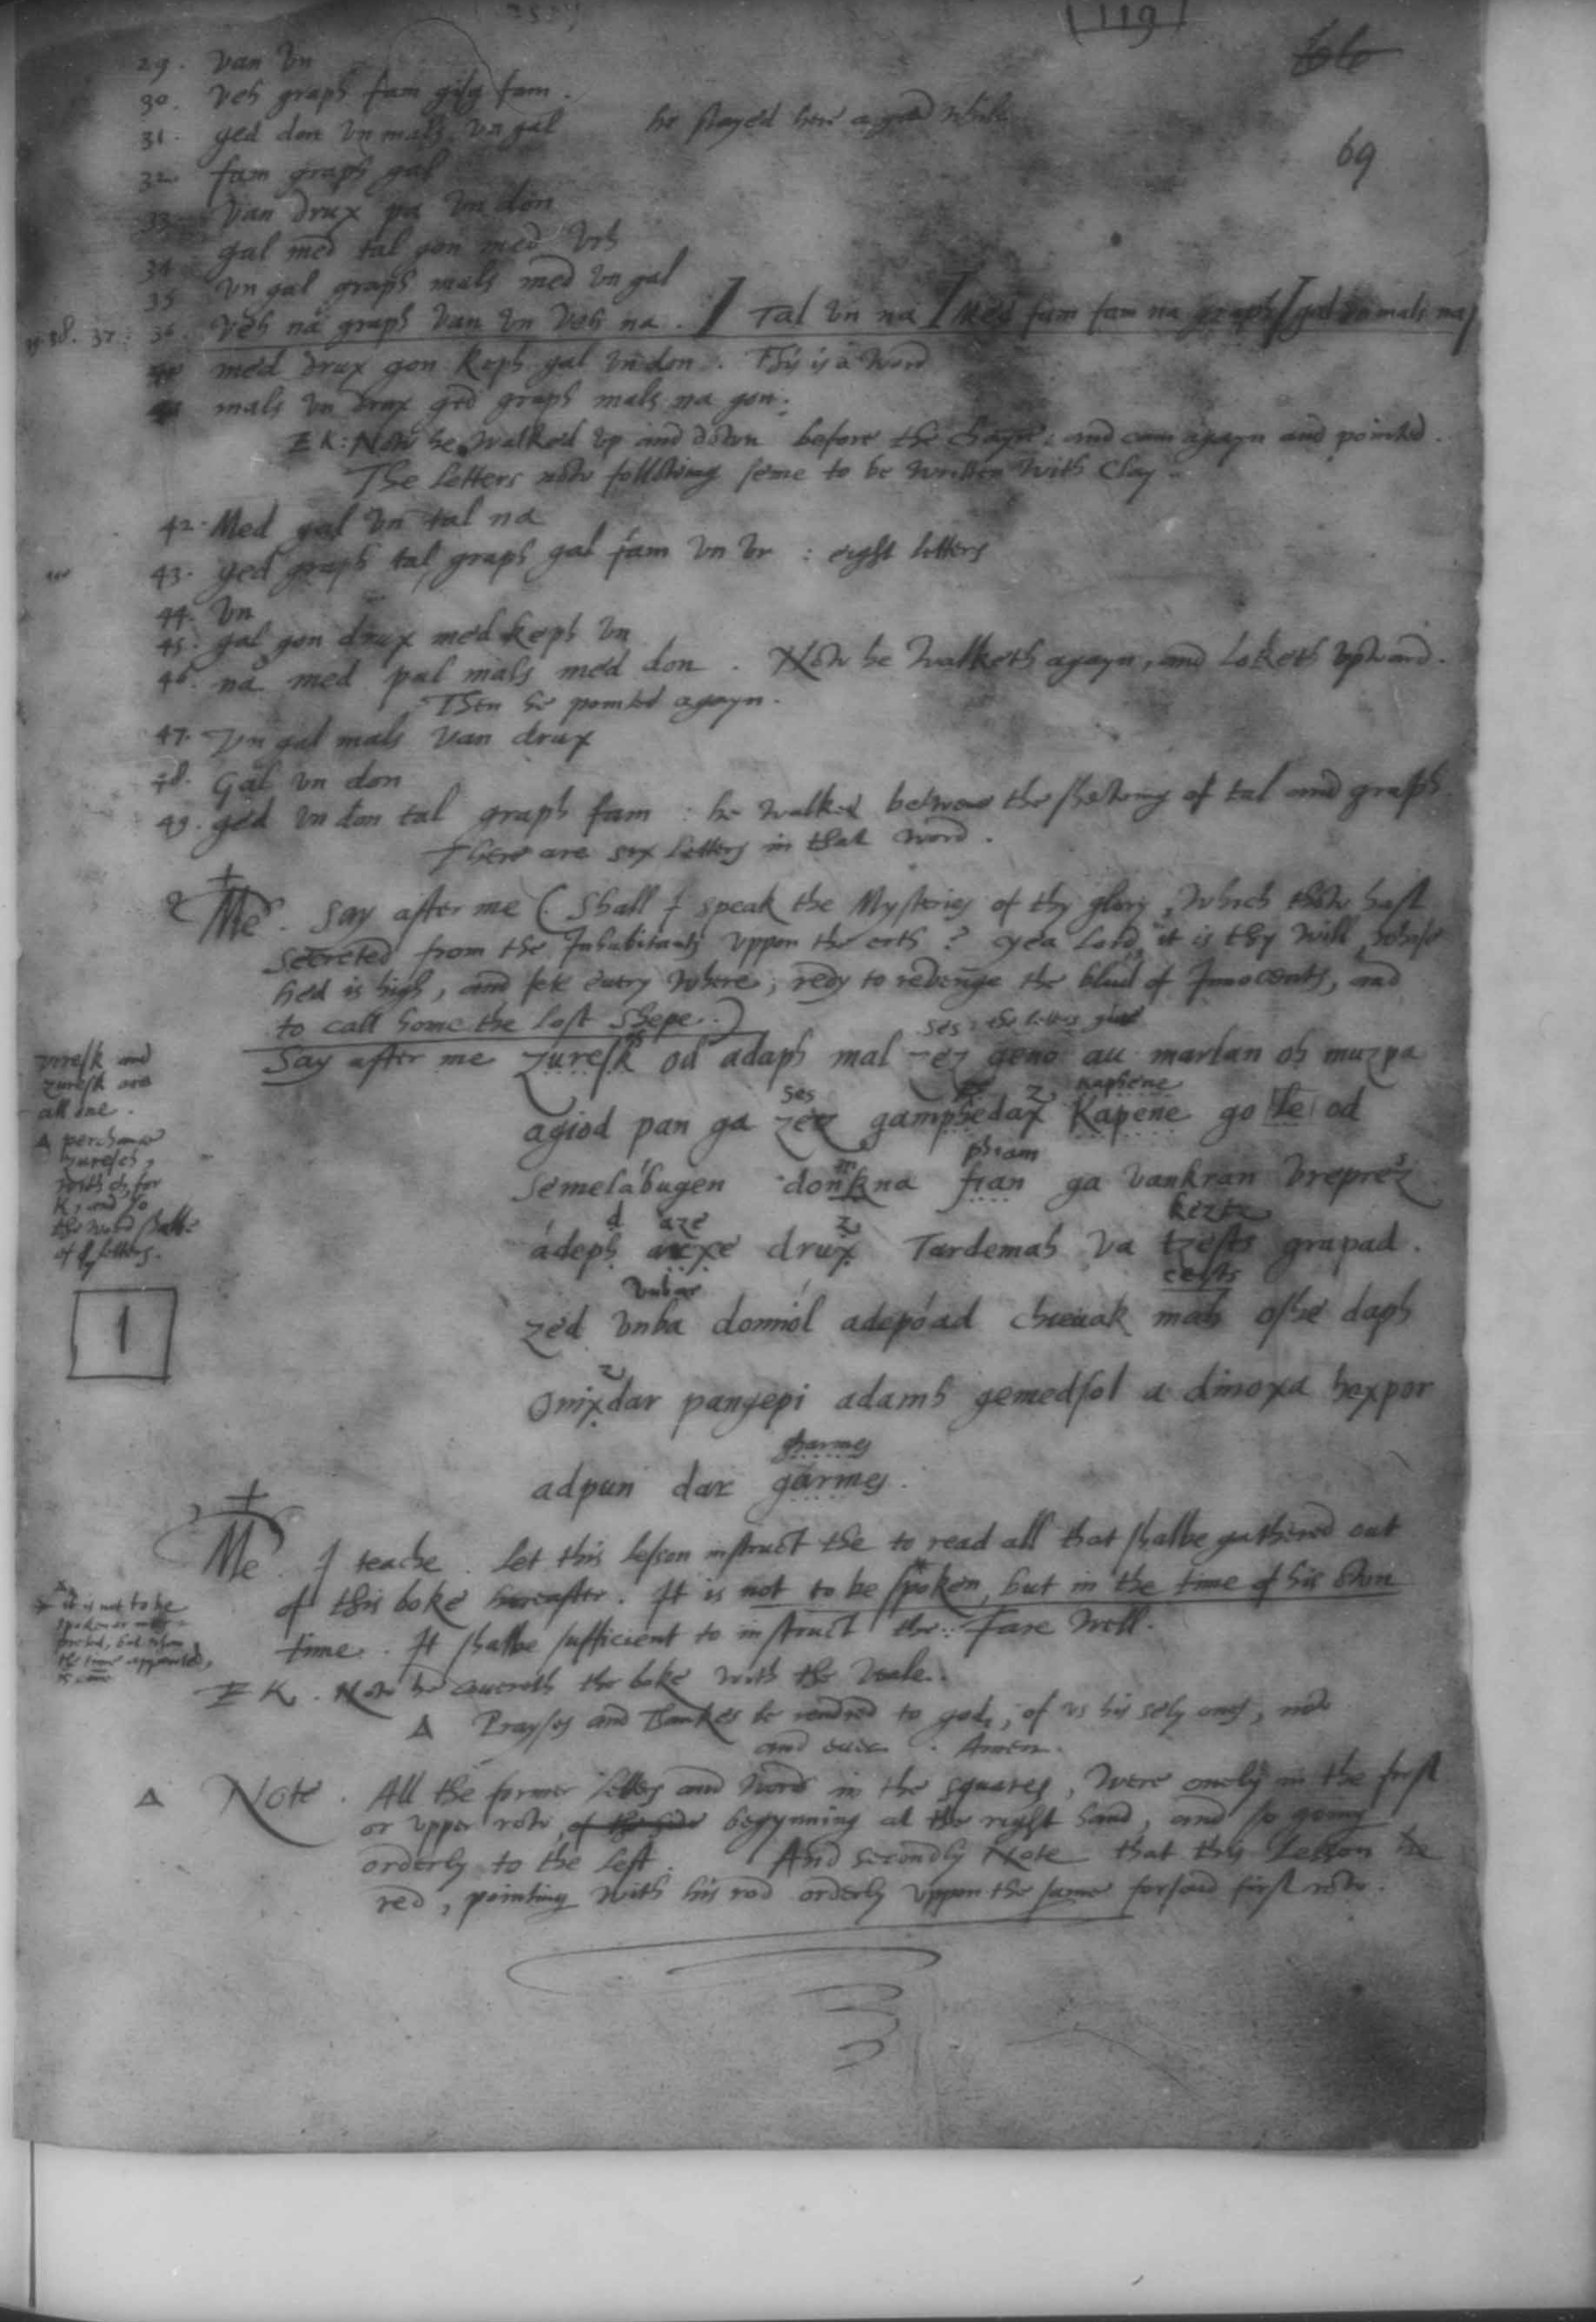 (119)
66
69
29. van vn
30. veh graph fam gisg fam.
31. ged don vn mals vn gal he stayed here a good while
32. fam graph gal
33. van drux pa vn don
34. gal med tal gon med vrh
35. vn gal graph mals med vn gal
39. 38. 37: 36. veh na graph van vn veh na. / Tal vn na / Med fam fam na graph / gal vn mals na /
40 med drux gon keph gal vn don. This is a word
41 mals vn drux ged graph mals na gon.
EK: Now he walked vp and down before the Chayre: and cam agayn and pointed.
The letters now following seme to be written with Clay.
42. Med gal vn tal na
43. ged graph tal graph gal fam vn vr : eight letters
44. vn
45. gal gon drux med keph vn
46. na med pal mals med don. Now he walketh agayn, and loketh vpward.
Then he pointed agayn.
47. Vn gal mals van drux
48. Gal vn don
49. ged vn don tal graph fam : he walked betwene the shewing of tal and graph
There are six letters in that word.
Me. Say after me (Shall I speak the Mysteries of thy glory, which thow hast
secreted from the Inhabitants vppon the erth? yea lord, it is thy will, whose
hed is high, and fete euery where, redy to revenge the blud of Innocents, and
to call home the lost shepe.)
ses: the letters give
Say after me zuresk od adaph mal zez geno au marlan oh muzpa
vresk and
zuresk are
all one.
Δ perchance
zuresch,
with ch for
k, and so
the word shalbe
of 7 letters.
ses z kaphene
agiod pan ga zez gamphedax Kapene go le od
m phiam
semelabugen donkna fian ga vankran vreprez
d aze z keztz
adeph arxe drux Tardemah va tzests grapad.
vnbar cests
zed vnba domiol adepoad chieuak mah oshe daph
z
onixdar pangepi adamh gemedsol a dinoxa hexpor
1
gharmes
adpun dar garmes.
Me. I teache. Let this lesson instruct the to read all that shalbe gathered out
of this boke hereafter. It is not to be spoken, but in the time of his own
time. It shalbe sufficient to instruct the: Fare well.
it is not to be
spoken or
but when
the time appointed,
is come
EK. Now he couereth the boke with the veale.
Δ Prayses and Thankes be rendred to god, of vs his sely ones, now
and euer. Amen.
Δ Note. All the former letters and words in the squares, were onely in the first
or vpper row, of the side begynning at the right hand, and so going
orderly to the left. And secondly Note that this Lesson he
red, pointing with his rod orderly vppon the same forsaid first row.